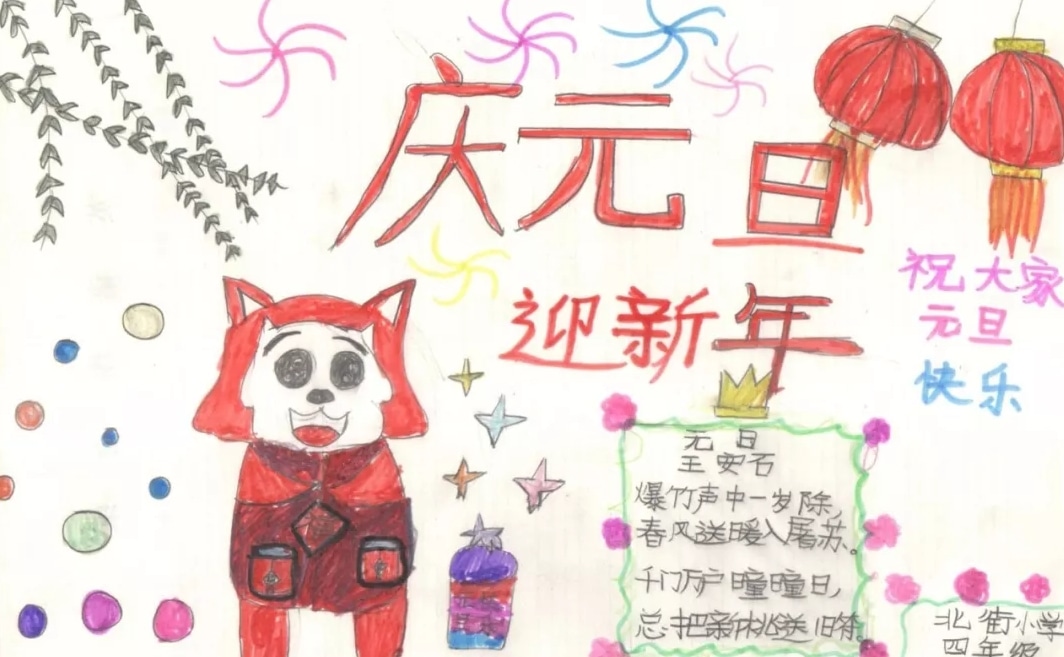 庆元旦
迎新年
祝大家
元旦
快乐
元日
王安石
爆竹声中一岁除，
春风送暖入屠苏。
千门万户曈曈日，
总把新桃送旧符。
北街小学
四年级